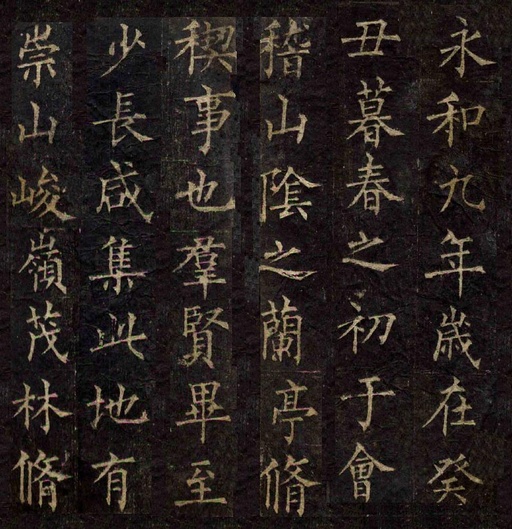 永和九年歲在癸
丑暮春之初于會
稽山陰之蘭亭脩
稧事也羣賢畢至
少長咸集此地有
崇山峻嶺茂林脩